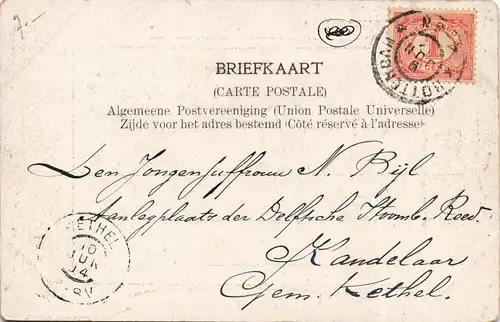 7.-
BRIEFKAART
(CARTE POSTALE)
Algemeene Postvereeniging (Union Postale Universelle)
Zijde voor het adres bestemd (Côté réservé à l'adresse)
ROTTERDAM
Den Jongejuffrouw N. Bijl
Aanlegplaats der Delftsche Stoomb. Reed.
Kandelaar
Gem. Kethel.
KETHEL
10
JUN
04